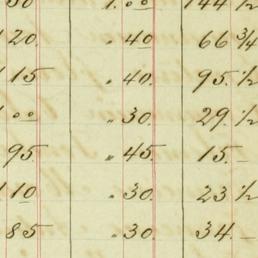 50 1.00 144 1/2
1 20. .40 66 3/4
1 15 .40. 95. 1/2
1.00 .30. 29. 1/2
95 .45 15. _
1 10 .30. 23 1/2
85 .30. 34. _